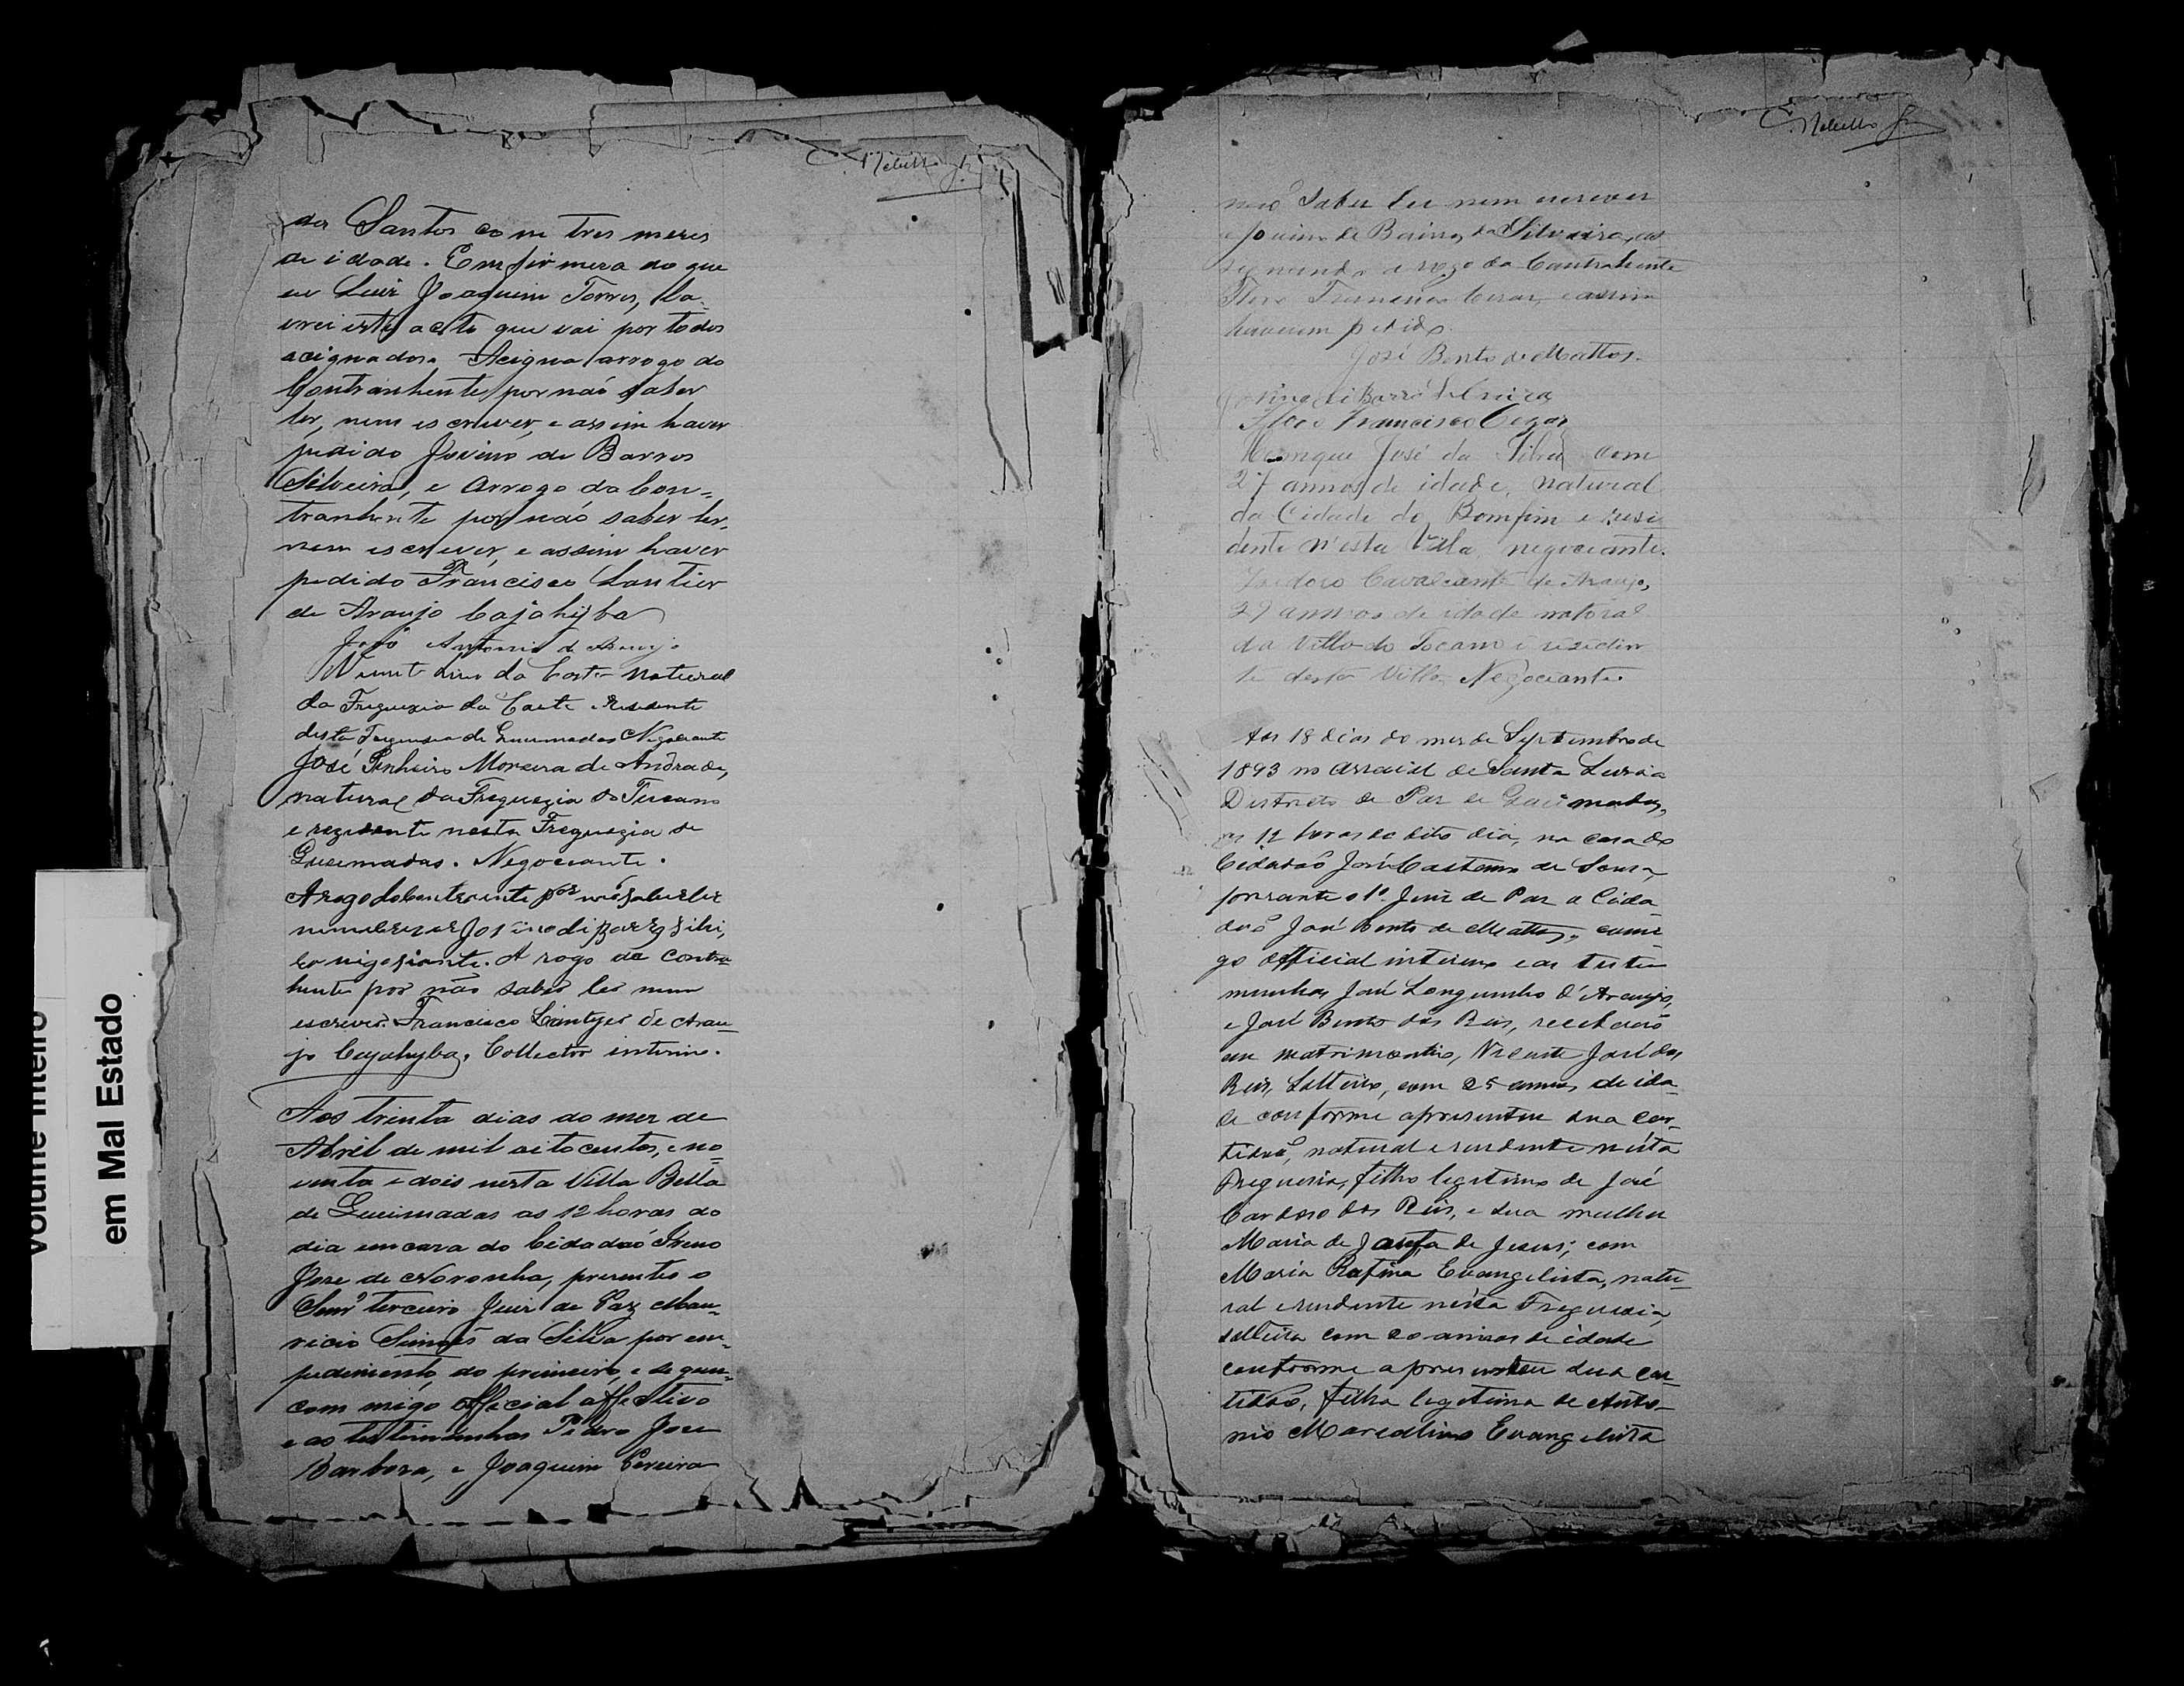 Volume Inteiro
em Mal Estado
dos Santos com tres meses
de idade. Em firmesa do que
eu Luiz Joaquim Torres, la-
vrei este acto que vai por todos
acignados. Acigna arrogo do
Contranhente por não saber
ler, nem escrever, e assim haver
pedido Jovino de Barros
Silveira, e arrogo da Con-
tranhente por não saber ler,
nem escrever, e assim haver
pedido Francisco Lantier
de Araujo Cajahyba
João Antonio de Araujo
da Costa natural
da Freguezia da Corte e Residente
desta Freguezia de Queimadas Negociante
José Pinheiro Moreira de Andrade,
natural da Freguezia do Tucano
e rezidente nesta Freguezia de
Queimadas. Negociante.
A rogo do Contraente por não saber ler
nem escrever Jovino di Barros Silvi,
negosiante. A rogo da Contra-
hente por não saber ler nem
escrever. Francisco Lantyer de Arau-
jo Cajahyba, Collector interino.
Aos trinta dias do mez de
Abril de mil oito centos, e no-
venta e dois nesta Villa Bella
de Queimadas as 12 horas do
dia em casa do Cidadão
Jose de Noronha, presentes o
Senr terceiro Juiz de Paz Mau-
ricio Simões da Silva por em-
pedimento do primeiro, e segun-
com migo Official effectivo
e as testimunhas Pedro Jose
Barbosa, e Joaquim Pereira
Rebello Jr
não saber ler nem escrever
e Jovino de Barros da Silveira, as
signando a rogo da Contrahente
Francisco Cezar, e assim
haverem pedido.
José Bento de Mattos.
Jovino di Barros Silveira
Francisco Cezar
Henrique José da Silva com
27 annos de idade, natural
da Cidade do Bomfim e resi
dente n'esta Villa, negociante.
Izidoro Cavalcante de Araujo,
29 annos de idade natural
da Villa do Tocano e residen
te desta Villa Negociante.
Aos 18 dias do mes de Septembro de
1893 no arraial de Santa Luzia
Districto de Paz de Queimadas,
as 12 horas do dito dia, na casa do
Cidadão José Caetano de Sousa,
perante o 1º Juiz de Paz o Cida-
dão José Bento de Mattos, comi-
go Official interino e as teste-
munhas José Longuinho d'Araujo,
e José Bento dos Reis, receberão
em matrimonio, Vicente José dos
Reis, Solteiro, com 25 annos de ida-
de conforme apresentou sua cer-
tidão, natural e residente nésta
Freguesia, filho legitimo de José
Cardoso dos Reis, e sua mulher
Maria de Jesus; com
Maria Rufina Evangelista, natu-
ral e residente nésta Freguesia,
solteira com 20 annos de idade
conforme apresentou sua cer-
tidão, filha legitima de Anto-
nio Marcolino Evangelista